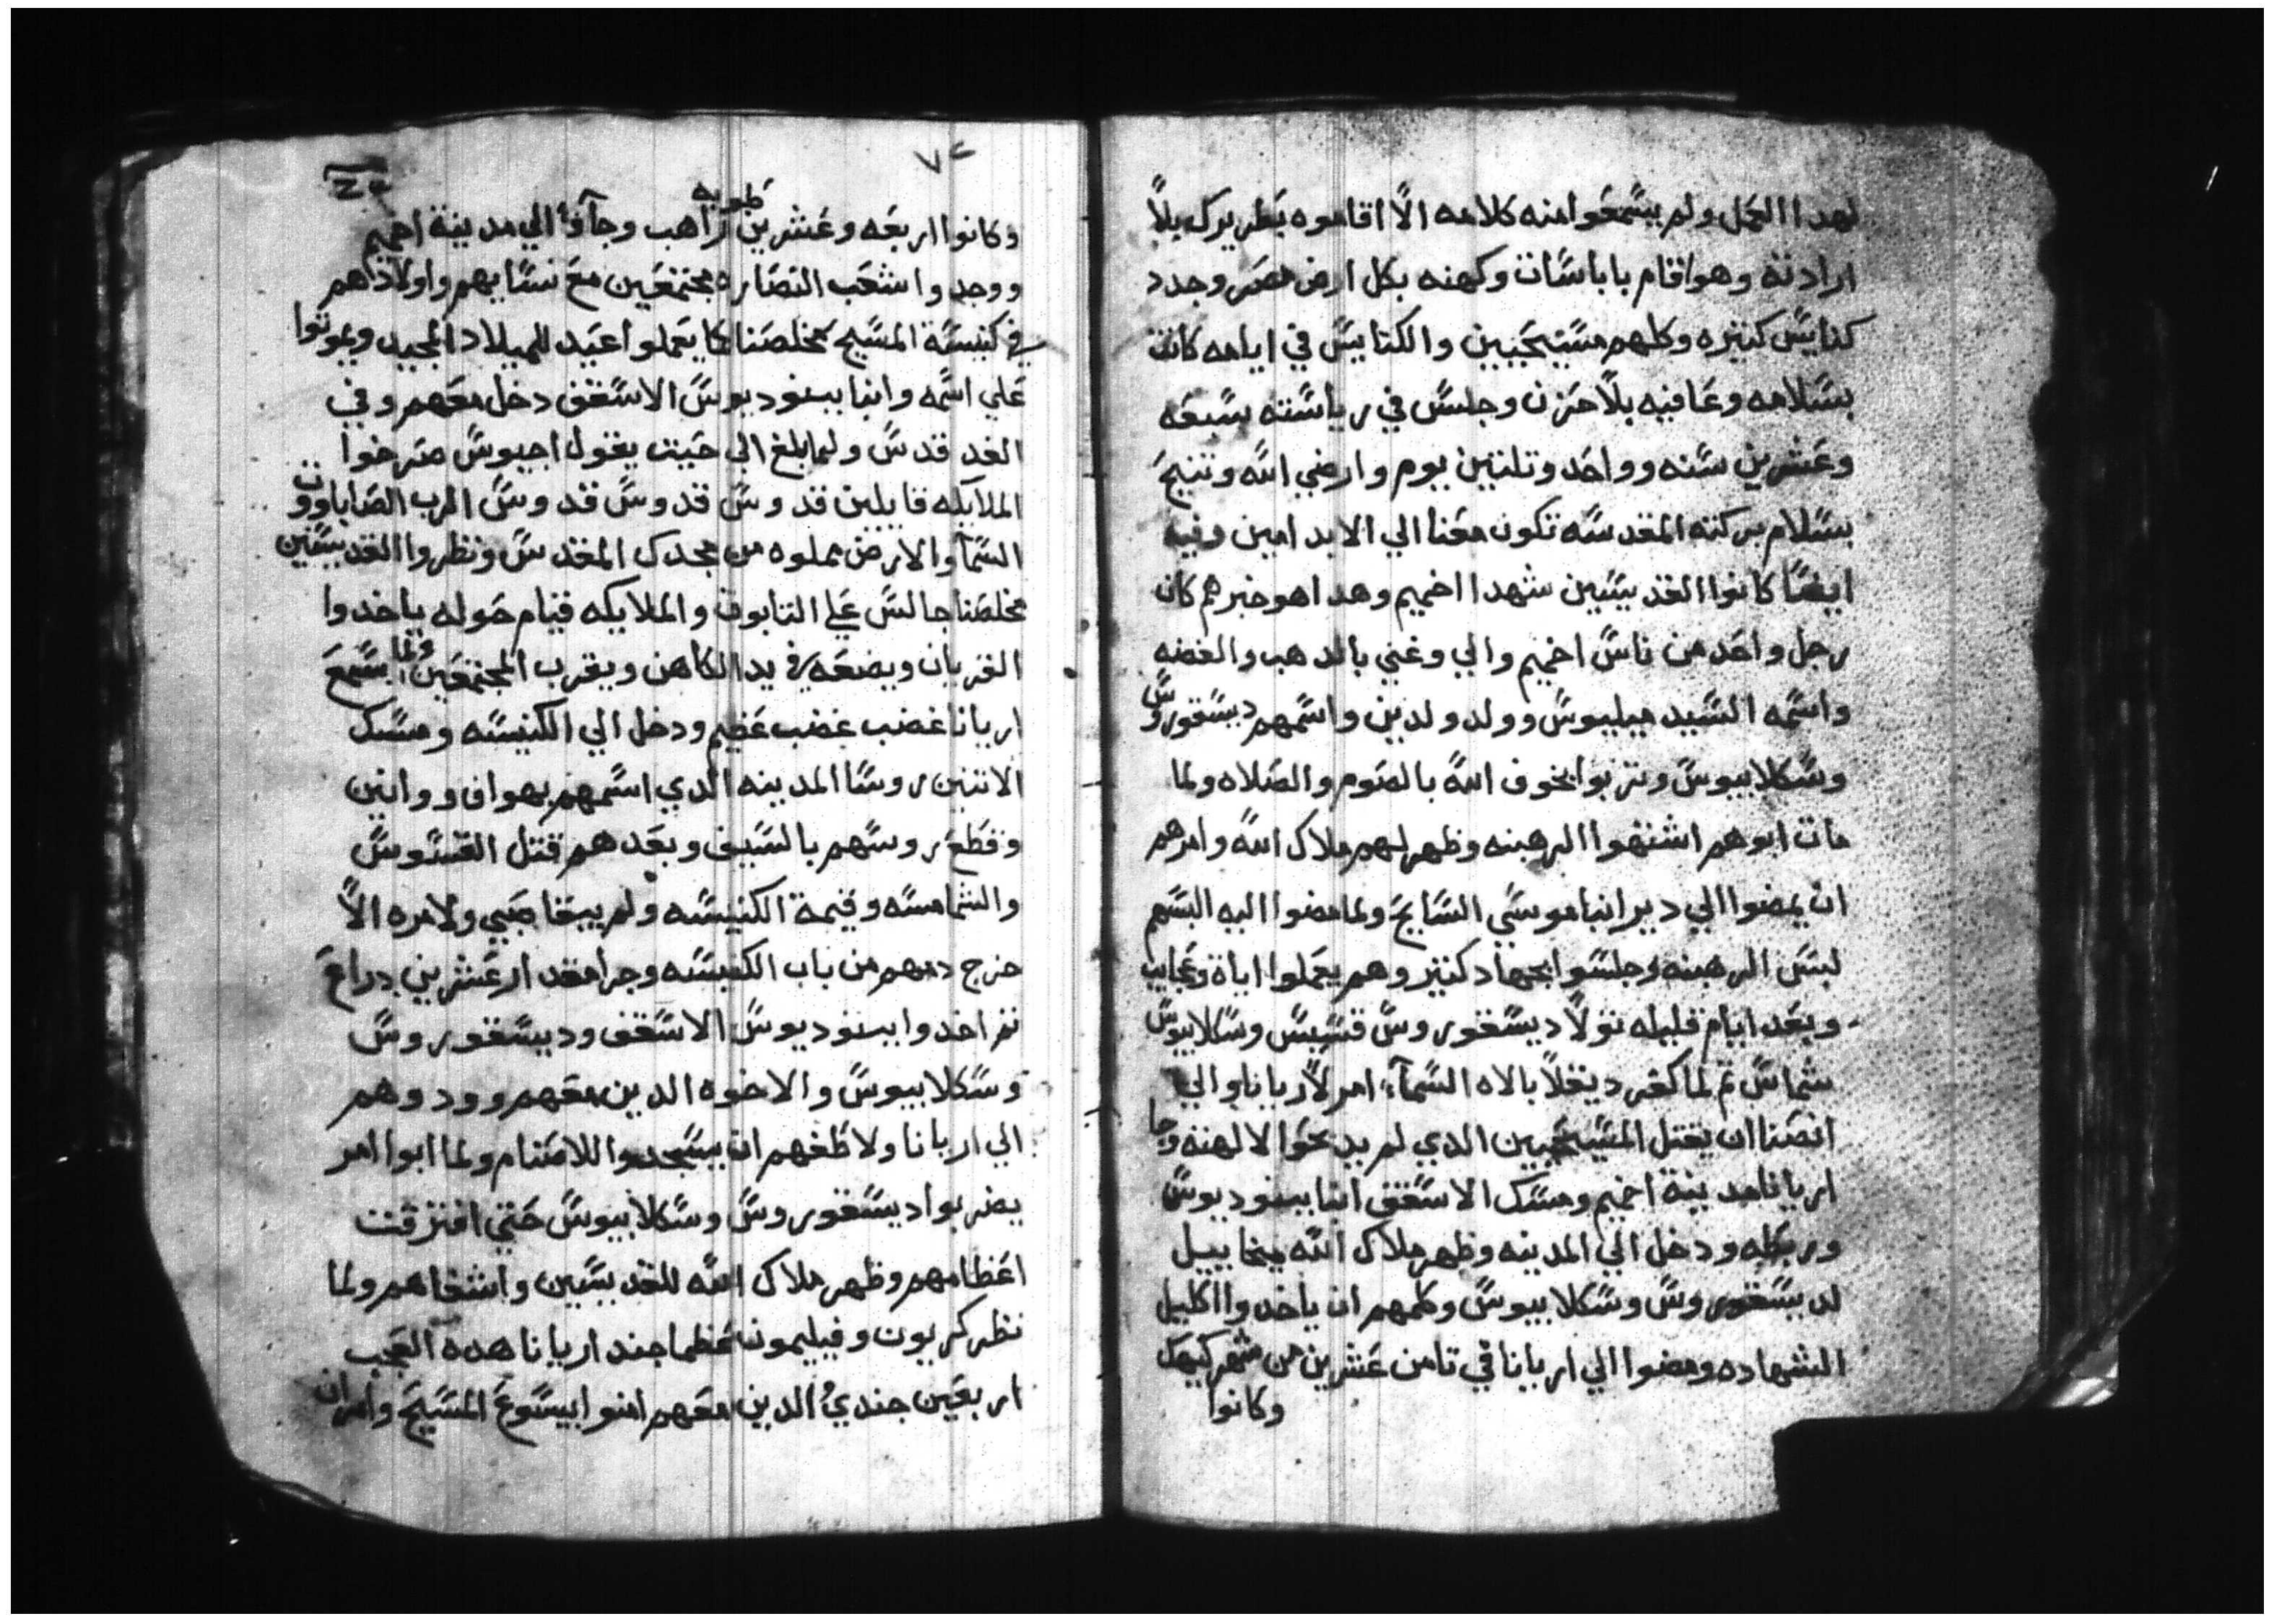 لهدا العمل ولم يسمعوا منه كلامه الا اقاموه بطريرك بلا
ارادته وهو اقام باباسات وكهنه بكل ارض مصر وجدد
كنايس كتيره وكلهم مسيحيين والكنايس في ايامه كانت
بسلامه وعافيه بلا حزن وجلس في رياسته سبعه
وعشرين سنه وواحد وتلتين يوم وارضي الله وتنيح
بسلام بركته المقدسه تكون معنا الي الابد امين وفيه
ايضا كانوا القديسين شهدا اخميم وهدا هو خبرهم كان
رجل واحد من ناس اخميم والي وغني بالدهب والفضه
واسمه السيد ميليوس وولد ولدين واسمهم ديسقوروس
وسكلابيوس وتربوا بخوف الله بالصوم والصلاه ولما
مات ابوهم اشتهوا الرهبنه وظهر لهم ملاك الله وامرهم
ان يمضوا الي دير انبا موسي السايح ولما مضوا اليه البسهم
لبس الرهبنه وجلسوا بجهاد كتير وهم يعملوا اياة وعجايب
وبعد ايام قليله تولا ديسقوروس قسيس وسكلابيوس
شماس تم لما كفر ديقلا بالاه السماء امر لاريانا والي
انصنا ان يقتل المسيحيين الدي لم يدبحوا لالهته وجا
اريانا مدينة اخميم ومسك الاسقف انبا ببنوديوس
وربطه ودخل الي المدينه وظهر ملاك الله ميخاييل
لديسقوروس وسكلابيوس وكلمهم ان ياخدوا اكليل
الشهاده ومضوا الي اريانا في تامن عشرين من شهر كيهك
وكانوا
٧٢
وكانوا اربعه وعشرين راهب وجاوا الي مدينة اخميم
ووجدوا شعب النصاره مجتمعين مع نسايهم واولادهم
في كنيسة المسيح مخلصنا كما يعملوا عيد للميلاد المجيد ويموتوا
علي اسمه وانبا ببنوديوس الاسقف دخل معهم وفي
الغد قدس ولما بلغ الي حيت يقول اجيوس صرخوا
الملايكه قايلين قدوس قدوس قدوس الرب الصاباووت
السما والارض مملوه من مجدك المقدس ونظروا القديسين
مخلصنا جالس علي التابوت والملايكه قيام حوله ياخدوا
القربان ويضعه في يد الكاهن ويقرب المجتمعين ولما سمع
اريانا غضب غضب عضيم ودخل الي الكنيسه ومسك
الاتنين روسا المدينه الدي اسمهم يهواف ووانين
وقطع روسهم بالسيف وبعدهم قتل القسوس
والشمامسه وقيمة الكنيسه ولم يبقا صبي ولامره الا
خرج دمهم من باب الكنيسه وجرا مقدار عشرين دراع
تم اخدوا ببنوديوس الاسقف وديسقوروس
وسكلابيوس والاخوه الدين معهم وودوهم
الي اريانا ولاطفهم ان يسجدوا للاصنام ولما ابوا امر
يضربوا ديسقوروس وسكلابيوس حتي افترقت
اعظامهم وظهر ملاك الله للقديسين واشفاهم ولما
نظر كريون وفيليمون عظما جند اريانا هده العجب
اربعين جندي الدين معهم امنوا بيسوع المسيح وامر ان